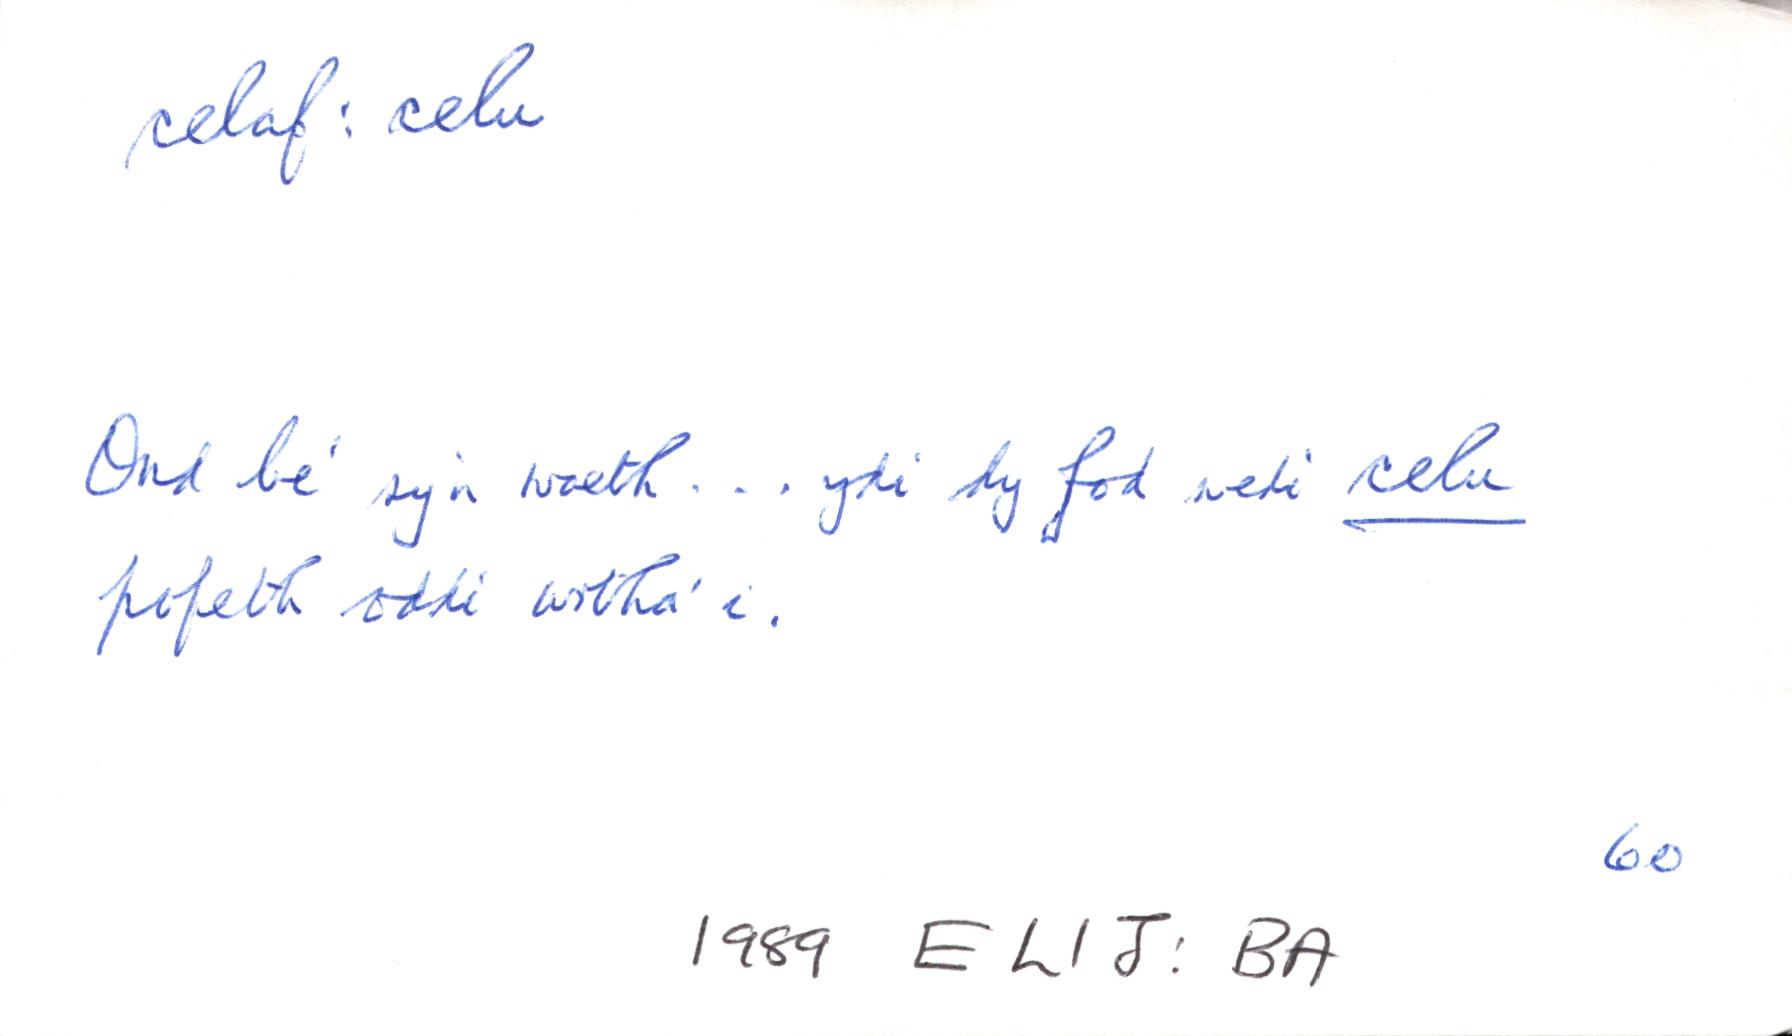 celaf: celu
Ond be' sy'n waeth... ydi dy fod wedi celu
popeth oddi wrtha' i.
60
1989 ELIJ: BA